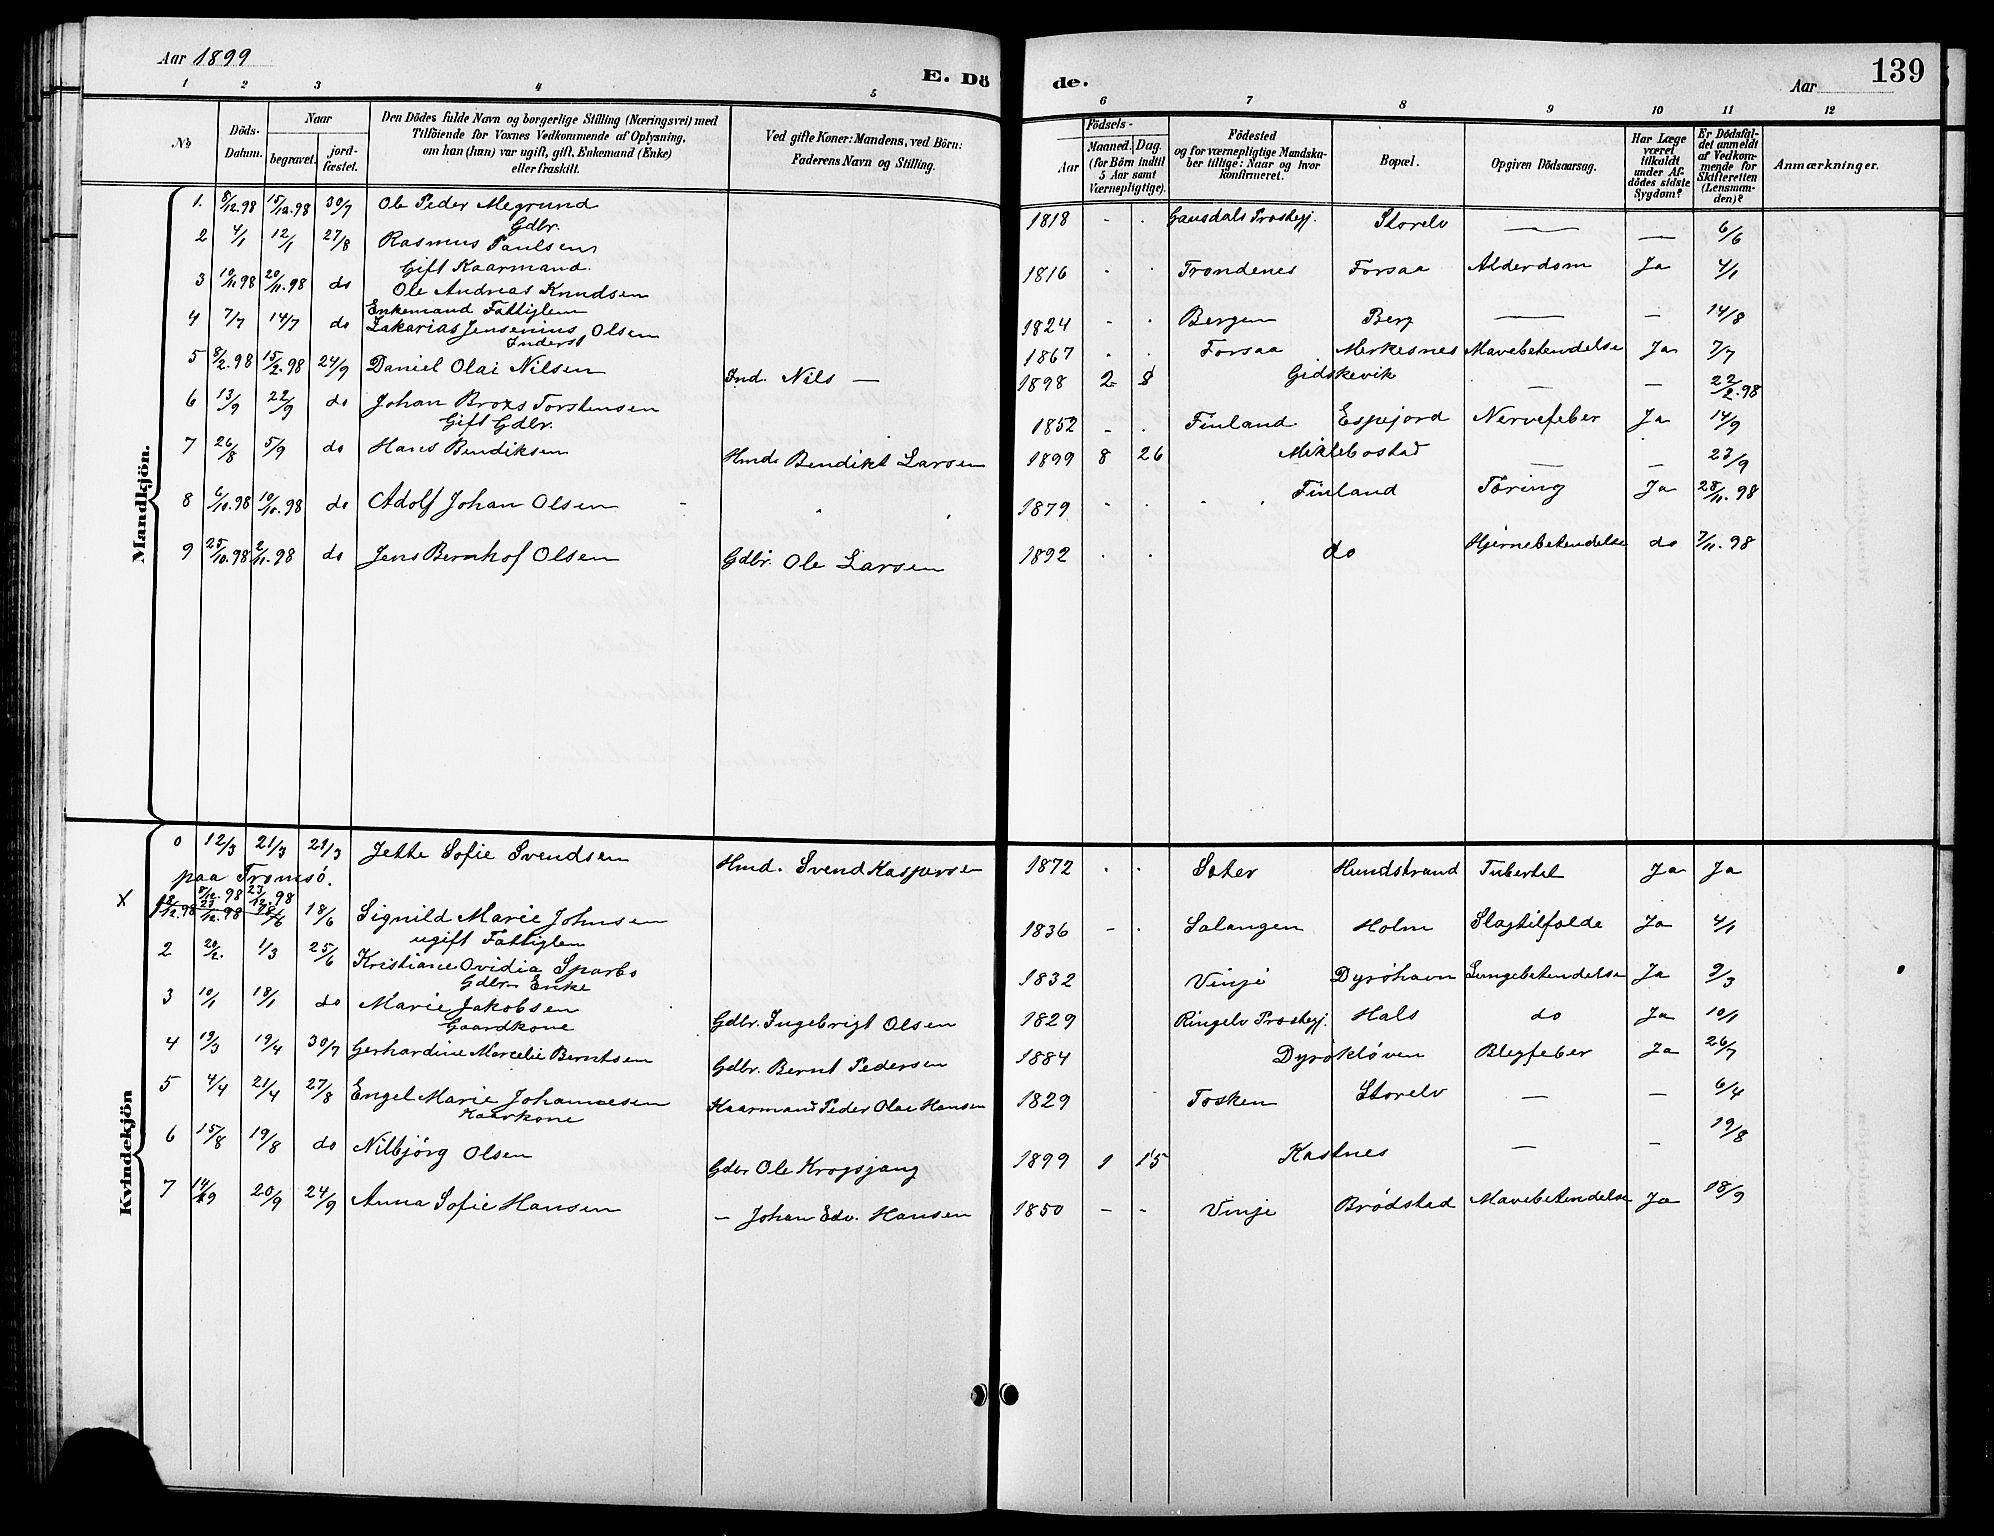 Aar 1899
E. Dö de.
Aar
139
1 2 3 4 5 6 7 8 9 10 11 12
№
Döds-Datum.
Naar
begravet.
jord-fæstet.
Den Dödes fulde Navn og borgerlige Stilling (Næringsvei) med
Tilföiende for Voxnes Vedkommende af Oplysning,
om han (hun) var ugift, gift, Enkemand (Enke)
eller fraskilt.
Ved gifte Koner: Mandens, ved Börn:
Faderens Navn og Stilling.
Födsels-
Aar
Maaned. Dag.
(for Börn indtil
5 Aar samt
Værnepligtige).
Födested
og for værnepligtige Mandska-
ber tillige: Naar og hvor
konfirmeret.
Bopæl.
Opgiven Dödsaarsag.
Har Læge
været
tilkaldt
under Af-
dödes sidste
Sygdom?
Er Dödsfal-
det anmeldt
af Vedkom-
mende for
Skifteretten
(Lensman-
den)?
Anmærkninger.
Mandkjön.
1. 8/12.98 15/12.98 30/7 Ole Peder Megrund
Gdbr.
1818 - . Gausdals Prostegj. Storelv — — 6/6
2 4/1 12/1 27/8 Rasmus Paulsen
Gift Kaarmand.
1816 . . Trondenes Forsaa Alderdom Ja 4/1
3 10/11.98 20/11.98 do Ole Andreas Knudsen
Enkemand Fattiglem
1824 - . Bergen Berg — — 14/8
4 7/7 14/7 do Zakarias Jensenius Olsen
Inderst
1867 . . Forsaa Mirkesnes Mavebetendelse Ja 7/7
5 8/2.98 15/2.98 24/9 Daniel Olai Nilsen Ind. Nils — 1898 2 8 Gidskevik — — 22/2.98
6 13/9 22/9 do Johan Broxs Torstensen
Gift Gdbr.
1852 - . Finland Espejord Nervefeber Ja 14/9
7 26/8 5/9 do Hans Bendiksen Hmd. Bendikt Larsen 1899 8 26 Miklebostad — — 23/9
8 6/10.98 10/10.98 do Adolf Johan Olsen 1879 - . Finland Tæring Ja 28/11.98
9 25/10.98 2/11.98 do Jens Bernhof Olsen Gdbr. Ole Larsen 1892 . . do Hjernebetendelse do 7/11.98
Kvindekjön
0 12/3 21/3 21/3 Jette Sofie Svendsen Hmd. Svend Kaspersen 1872 . . Sæter Hundstrand Tubertel Ja Ja
paa Tromsö.
x 8/12.98 23/12.98
18/6 Signild Marie Johnsen
ugift Fattiglem
1836 - . Salangen Holm Slagtilfælde Ja 4/1
2 20/2. 1/3 25/6 Kristiane Ovidia Sparbo
Gdbr. Enke
1832 Vinje Dyröhavn Lungebetendelse Ja 9/3
3 10/1 18/1 do Marie Jakobsen
Gaardkone
Gdbr. Ingebrigt Olsen 1829 Ringelv Prostegj. Hals do Ja 10/1
4 19/3 19/4 30/7 Gerhardine Marcelie Berntsen Gdbr. Bernt Pedersen 1884 Dyröklöven Blegfeber Ja 26/7
5 4/4 21/4 27/8 Engel Marie Johannesen
Kaarkone
Kaarmand Peder Olai Hansen 1829 Tosken Storelv — — 6/4
6 15/8 19/8 do Nilbjörg Olsen Gdbr Ole Krogsjang 1899 1 15 Kastnes — — 19/8
7 14/9 20/9 24/9 Anna Sofie Hansen — Johan Edv. Hansen 1850 - - Vinje Brödstad Mavebetendelse Ja 18/9